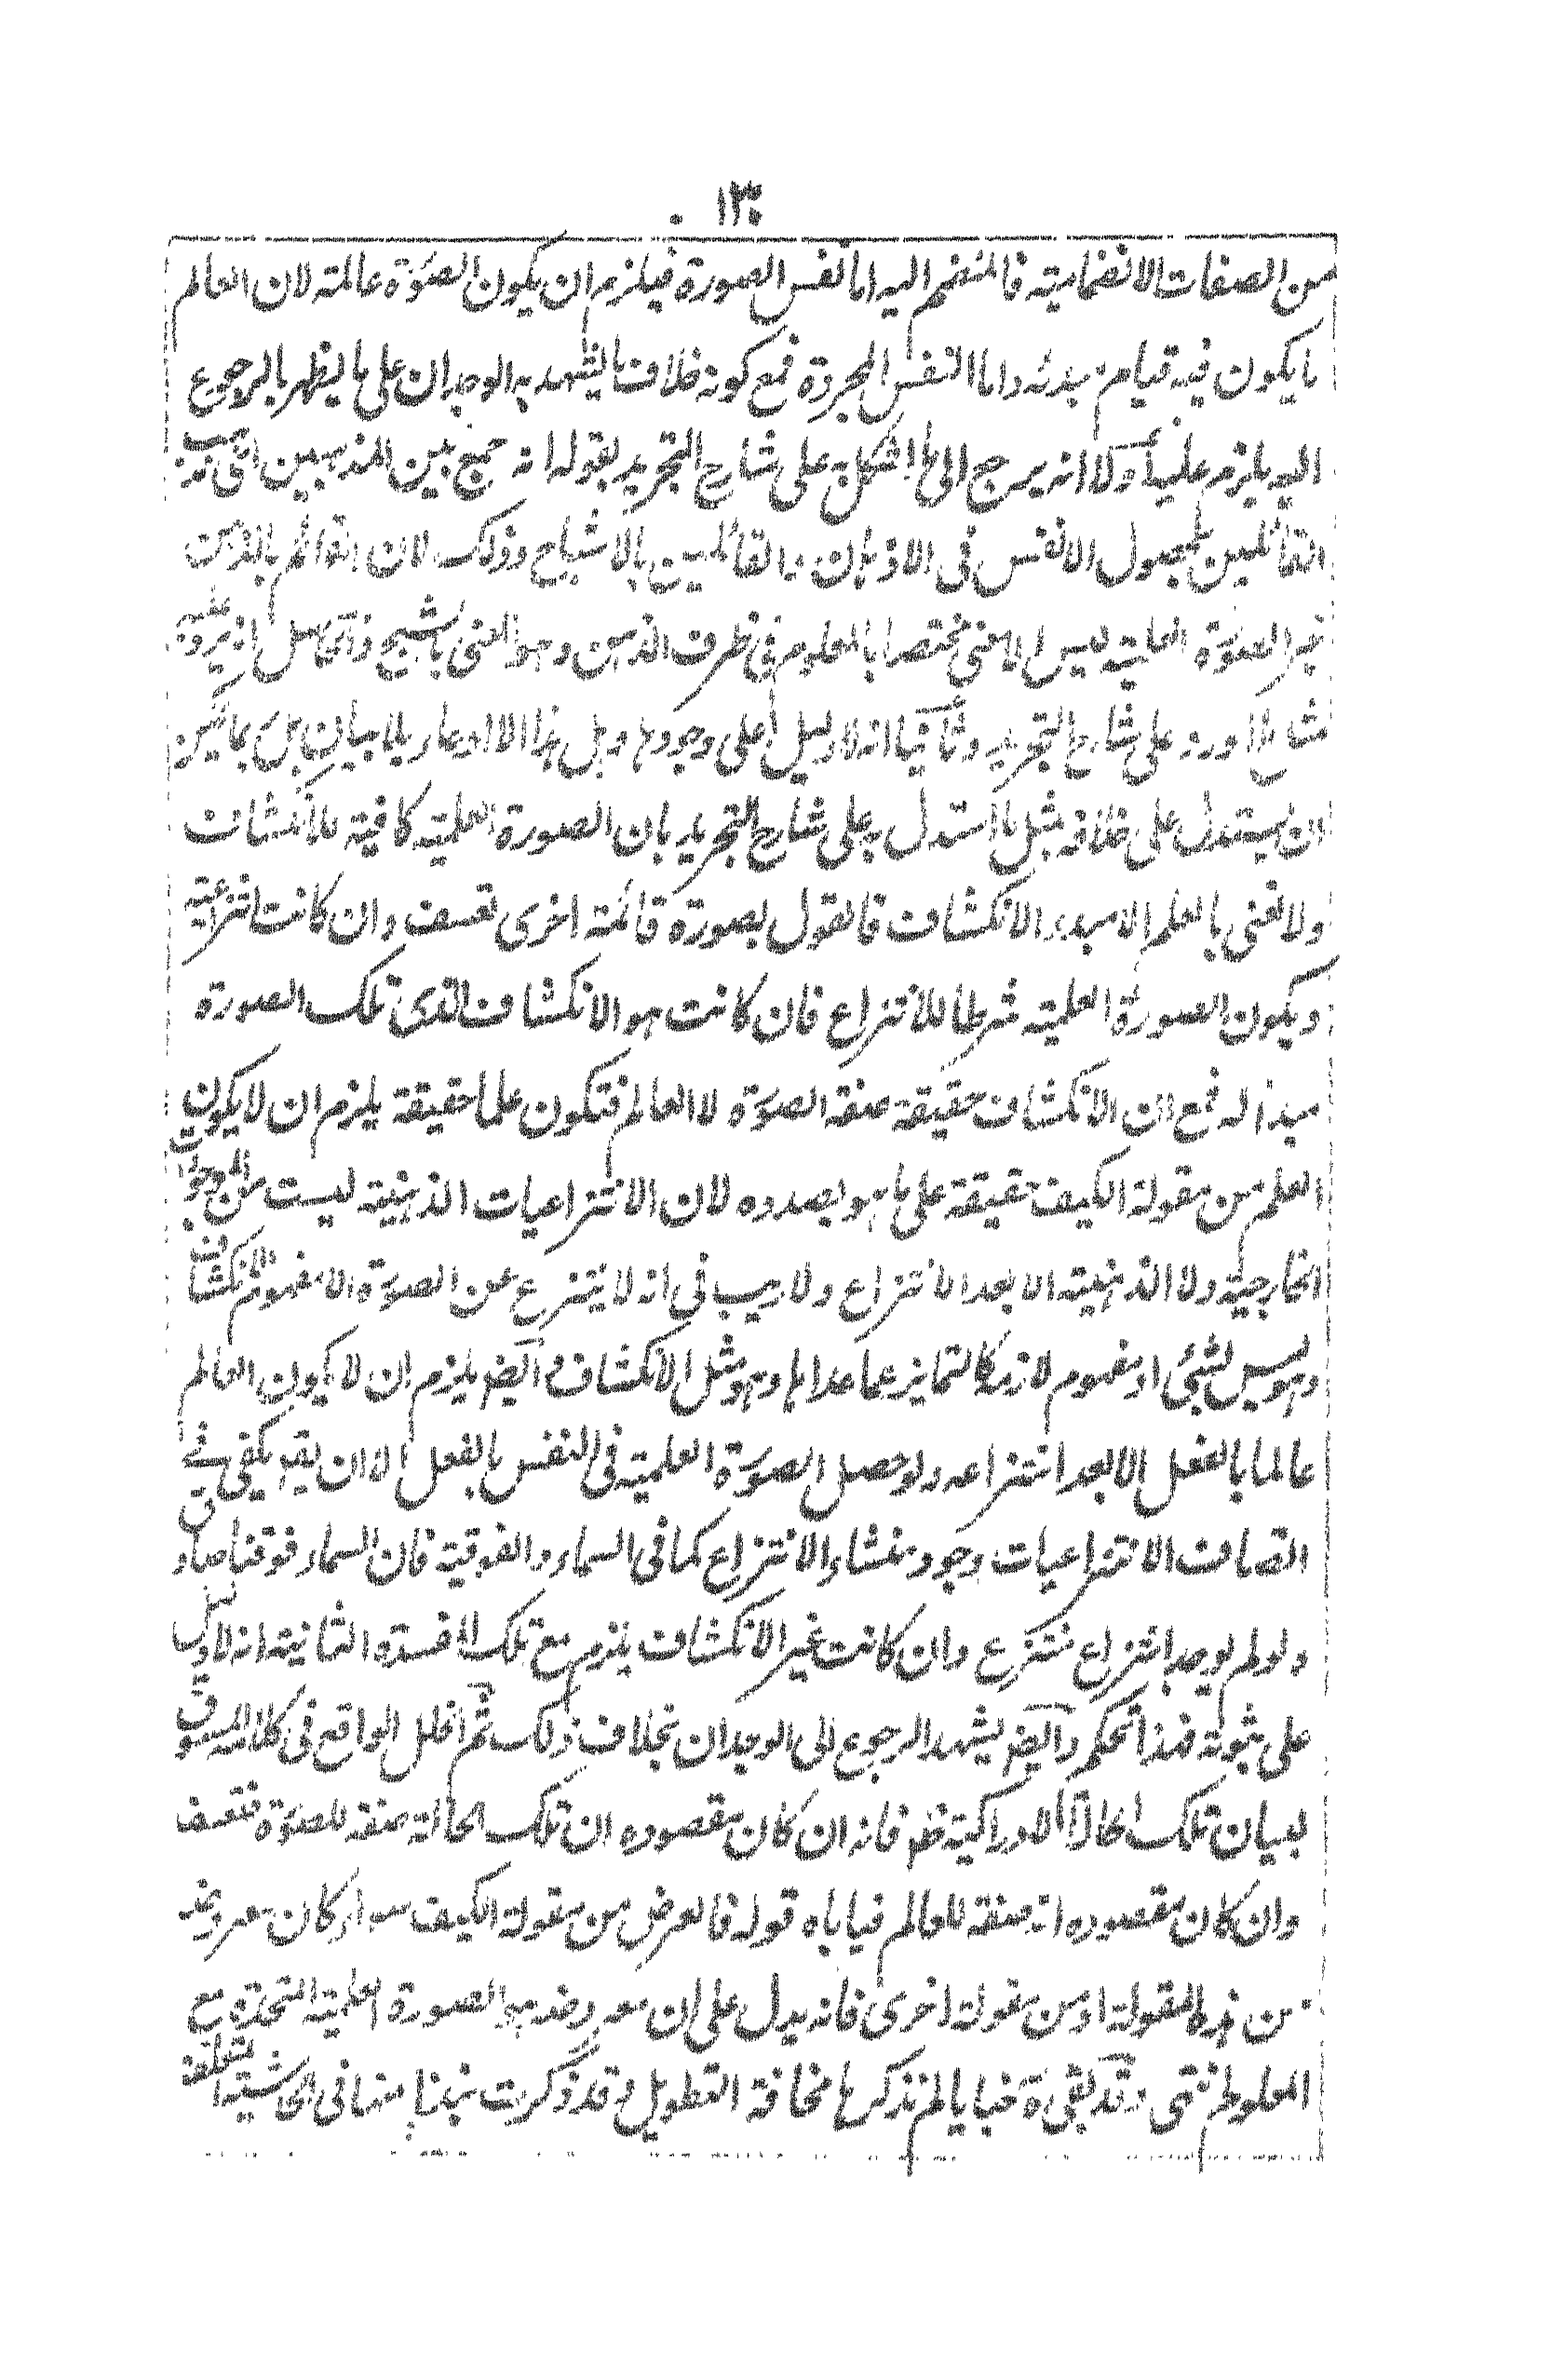 ١٣٠
من الصفات الانضمامية فالمنضم اليه اما نفس الصورة فيلزم ان يكون الصورة عالمة لان العالم
ما يكون فيه قيام مبدئه واما النفس المجردة فمع كونه خلاف ما يشهد به الوجدان على ما يظهر بالرجوع
اليه يلزم عليه اولا انه يرجع الى ما اشكل به على شارح التجريد بقوله انه جمع بين المذهبين اى مذهب
القائلين بحصول الانفس فى الاذهان والقائلين بالاشباح وذلك لان القائم بالذهن
غير الصورة العلمية ليس الا معنى مختصا بالمعلوم فى ظرف الذهن وهو المعنى بالشبح والحاصل انه يرد عليه
مثل ما اورد على شارح التجريد وثانيا انه لا دليل على وجودها وهل هذا الا ادعاء بلا بيان بل ربما يمكن
ان يستدل على خلافه بمثل ما استدل به على شارح التجريد بان الصورة العلمية كافية للانكشاف
ولا نعنى بالعلم الا مبدء الانكشاف فالقول بصورة قائمة اخرى تعسف وان كانت انتزاعية
ويكون الصورة العلمية شرطا للانتزاع فان كانت هو الانكشاف الذى تلك الصورة
مبدأ له فمع ان الانكشاف حقيقة صفة الصورة لا العالم فتكون علما حقيقة يلزم ان لا يكون
العلم من مقولة الكيف حقيقة على ما هو بصدده لان الانتزاعيات الذهنية ليست من الموجودات
الخارجية ولا الذهنية الا بعد الانتزاع ولا ريب فى انه لا ينتزع عن الصورة الا مفهوم الانكشاف
وهو ليس بشئ او مفهوم لازمه كالتمايز عما عداها وهو مثل الانكشاف وايضا يلزم ان لا يكون العالم
عالما بالفعل الا بعد انتزاعه ولو حصل الصورة العلمية فى النفس بالفعل الا ان يقه يكفى فى
اتصاف الانتزاعيات وجود منشاء الانتزاع كما فى السماء والفوقية فان السماء فوقنا صادق
ولو لم يوجد انتزاع منتزع وان كانت غير الانكشاف يلزم مع تلك المفسدة الثانية انه لا دليل
على ثبوته فهذا تحكم وايضا يشهد الرجوع الى الوجدان بخلاف ذلك ثم الخلل الواقع فى كلامه المسوق
لبيان تلك الحالة الادراكية فظهر فانه ان كان مقصوده ان تلك الحالة صفة للصورة فتعسف
وان كان مقصوده انه صفة للعالم فياباه قوله فالعرض من مقولة الكيف سواء كان معروضه
من هذه المقولة او من مقولة اخرى فانه يدل على ان معروضه هو الصورة العلمية المتحدة مع
المعلوم انتهى وقد بقى خبايا لم نذكرها مخافة التطويل وقد ذكرت نبذا منها فى الحاشية المتعلقة